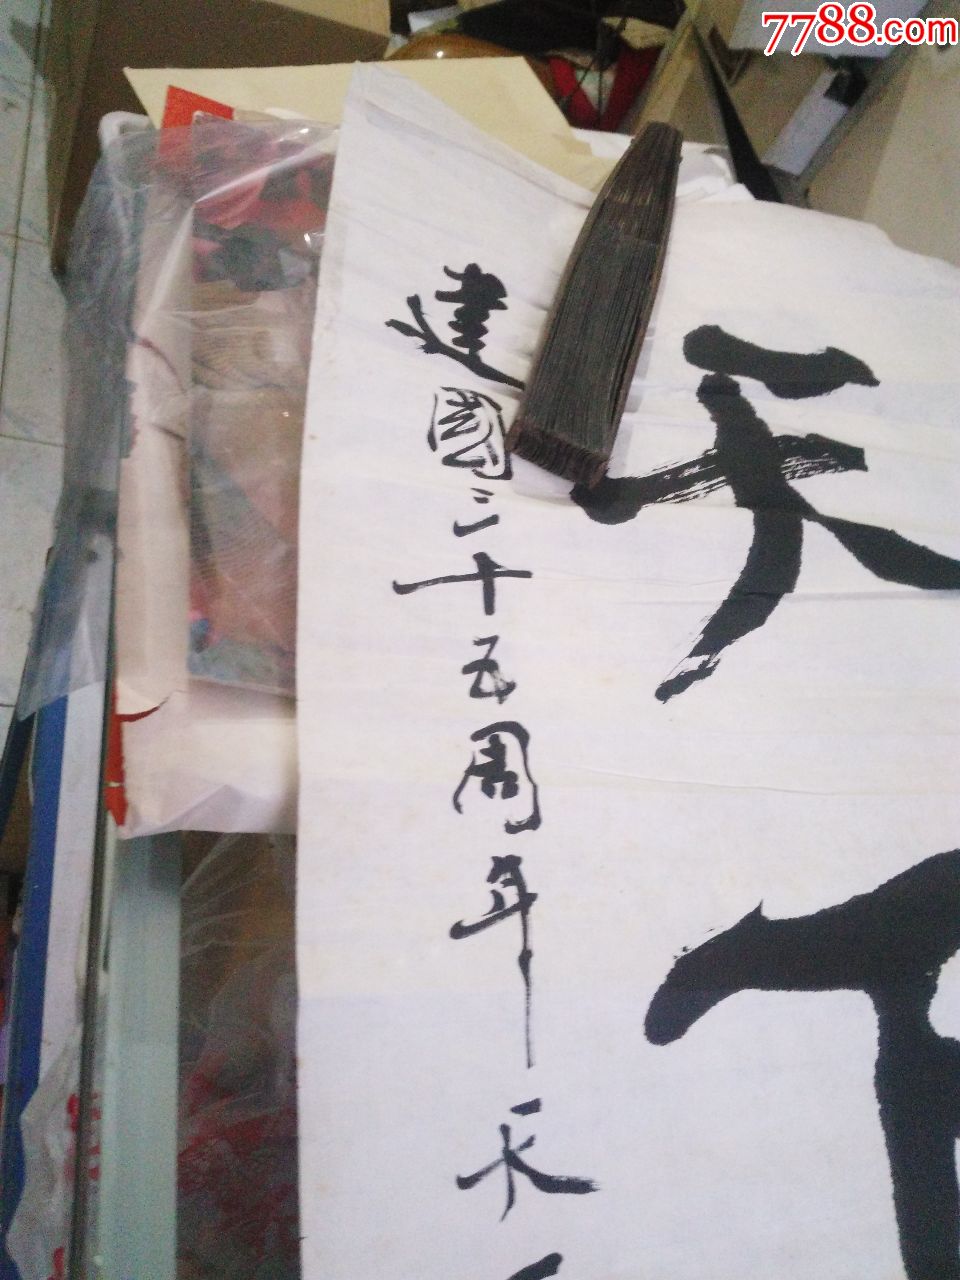 天下
建國三十五周年
7788.com